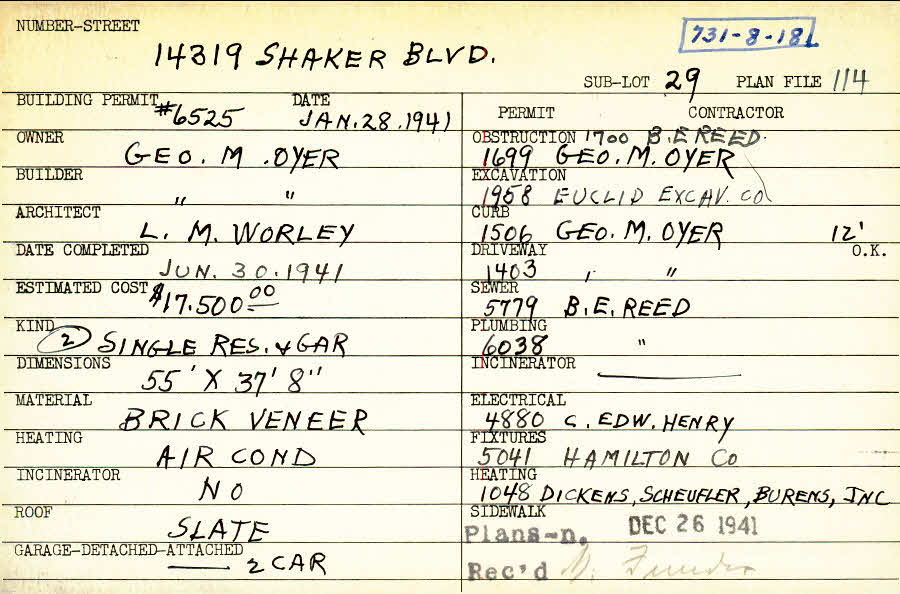 NUMBER-STREET
14319 SHAKER BLVD.
731-8-18
SUB-LOT 29 PLAN FILE 114
BUILDING PERMIT #6525 DATE JAN. 28. 1941
OWNER
GEO. M. OYER
BUILDER
" "
ARCHITECT
L. M. WORLEY
DATE COMPLETED
JUN. 30. 1941
ESTIMATED COST $17.500 00
KIND
(2) SINGLE RES. & GAR
DIMENSIONS
55' X 37' 8"
MATERIAL
BRICK VENEER
HEATING
AIR COND
INCINERATOR
NO
ROOF
SLATE
GARAGE-DETACHED-ATTACHED
2 CAR
PERMIT CONTRACTOR
OBSTRUCTION 1700 B. E REED.
1699 GEO. M. OYER
EXCAVATION
1958 EUCLID EXCAV. CO
CURB
1506 GEO. M. OYER 12'
DRIVEWAY O.K.
1403 , "
SEWER
5779 B. E. REED
PLUMBING
6038 "
INCINERATOR
ELECTRICAL
4880 C. EDW. HENRY
FIXTURES
5041 HAMILTON CO
HEATING
1048 DICKENS, SCHEUFLER, BURENS, INC
SIDEWALK
Plans-n. DEC 26 1941
Rec'd